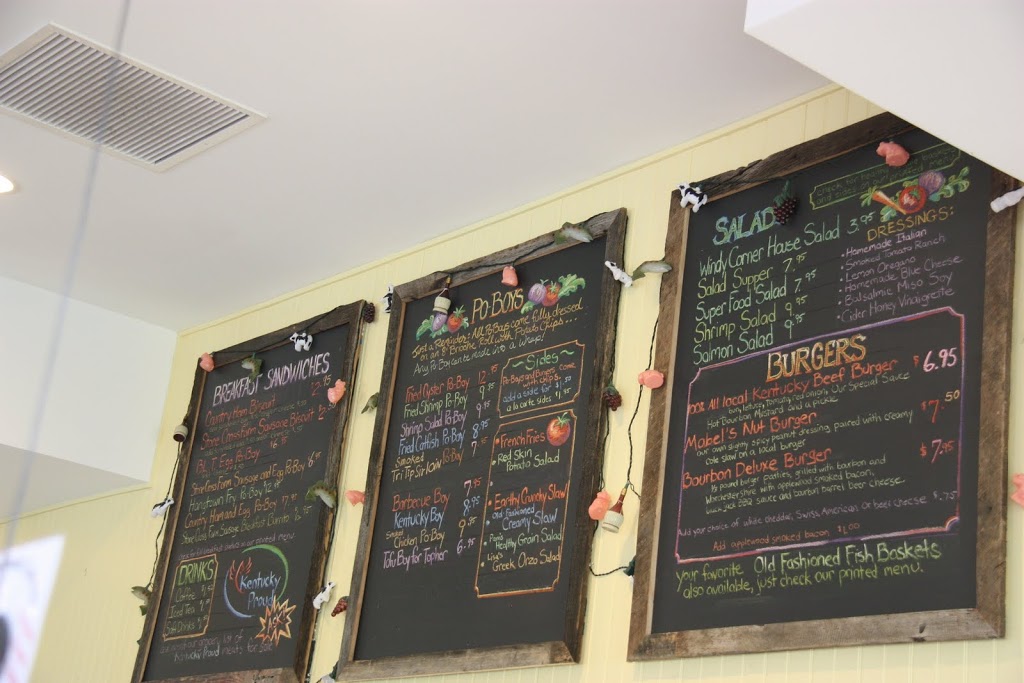 BREAKFAST SANDWICHES
Country Ham Biscuit 2.95
Sausage Biscuit 2.
B.L.T. Egg Po-Boy
Stone Cross Farm Sausage and Egg Po-Boy 6.95
Hangtown Fry Po-Boy
Country Ham and Egg Po-Boy
Stone Cross Farm Sausage Breakfast Burrito
printed menu
DRINKS
Coffee
Iced Tea
Soft Drinks
Kentucky
Proud
Kentucky Proud meats for sale
PO-BOYS
Just a Reminder: All Po-Boys come fully dressed
on an 8" Roll with Potato Chips...
Any Po-Boy can be made into a Wrap!
Fried Oyster Po-Boy 12.95
Fried Shrimp Po-Boy 9.95
Shrimp Salad Po-Boy 9.95
Fried Catfish Po-Boy 8.95
Smoked
Tri Tip Sirloin Po-Boy
Barbecue Boy 7.95
Kentucky Boy 9.95
Smoked
Chicken Po-Boy 9.95
Tofu Boy for Topher 6.95
~Sides~
Po-Boys and Burgers come
with chips
add a side for $1.50
a la carte sides
• French Fries
• Red Skin
Potato Salad
• Earthy Crunchy Slaw
• Old-Fashioned
Creamy Slaw
Healthy Grain Salad
Greek Orzo Salad
SALAD
Windy Corner House Salad 3.95
Salad Supper 7.95
Super Food Salad 7.95
Shrimp Salad 9.95
Salmon Salad 9.95
DRESSINGS:
• Homemade Italian
• Smoked Tomato Ranch
• Lemon Oregano
• Homemade Blue Cheese
• Balsalmic Miso Soy
• Cider Honey Vinaigrette
BURGERS
100% All local Kentucky Beef Burger $6.95
bun, lettuce, tomato, red onion, Our Special Sauce
Hot Bourbon Mustard and a pickle
Mabel's Nut Burger $7.50
our own slighty spicy peanut dressing, paired with creamy
cole slaw on a local burger
Bourbon Deluxe Burger $7.95
1/2 pound burger patties, grilled with bourbon and
Whorchestershire with applewood smoked bacon,
black jack BBQ sauce and bourbon barrel beer cheese.
Add your choice of white cheddar, Swiss, American. Or beer cheese $.75
Add applewood smoked bacon $1.00
your favorite Old Fashioned Fish Baskets
also available, just check our printed menu.